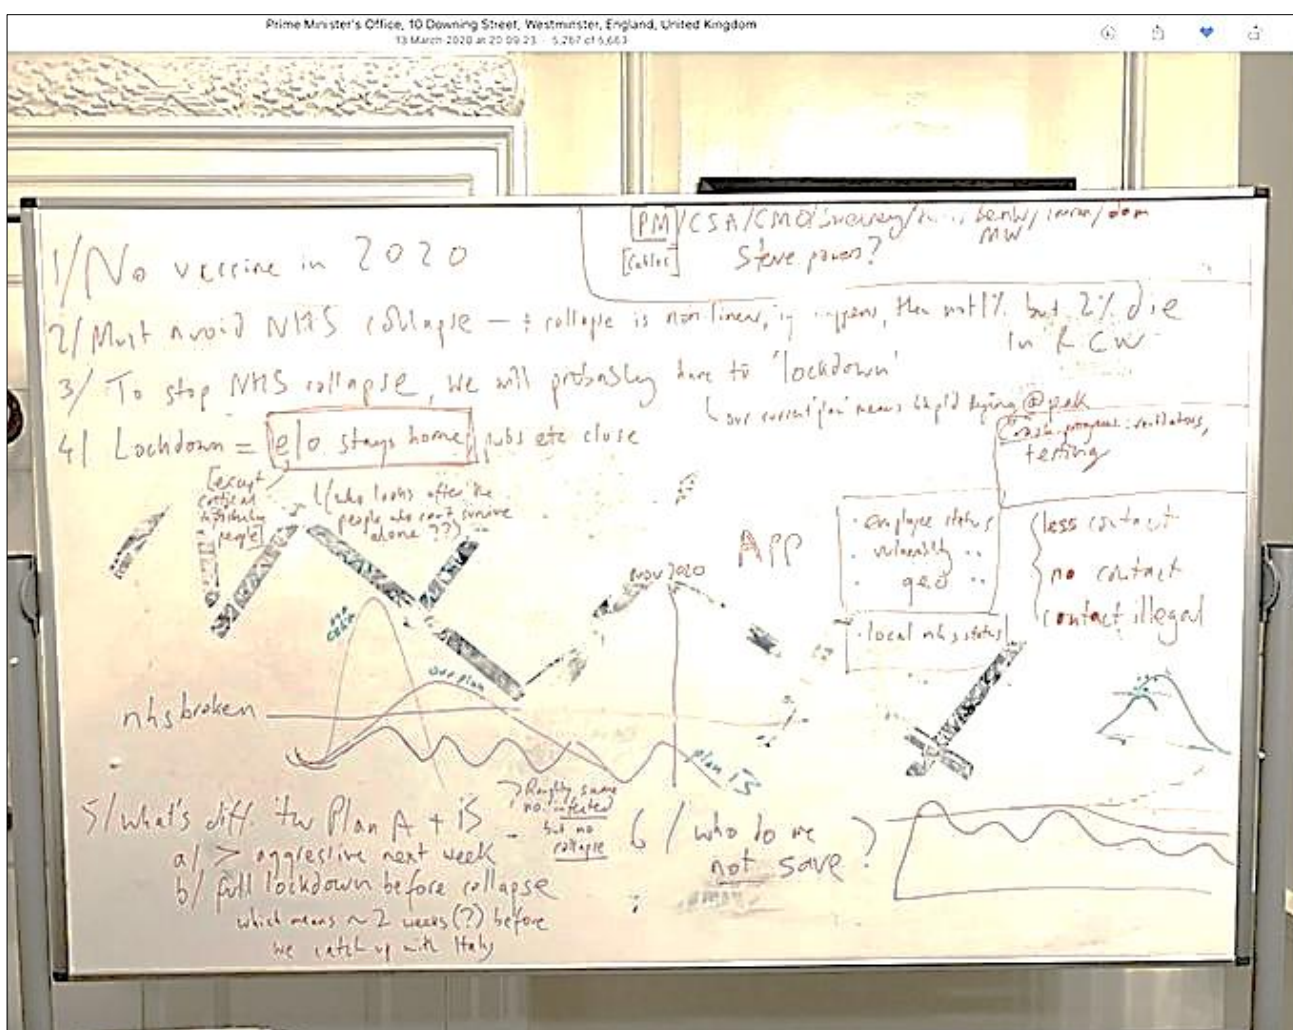 Prime Minister's Office, 10 Downing Street, Westminster, England, United Kingdom
13 March 2020 at 20:09:23 - 5,267 of 5,663
[PM]/CSA/CMO/
[Cables] Steve powers? MW
1/ No vaccine in 2020
2/ Must avoid NHS collapse - collapse is non-linear, happens, then not 1% but 2% die
in R C W
3/ To stop NHS collapse, we will probably have to 'lockdown'
our current 'plan' means dying @ peak
4/ Lockdown = e/o stays home, pubs etc close
ventilators,
testing
[except
critical
people]
(who looks after the
people who can't survive
alone??)
APP
· employee status
· vulnerability ··
· geo ··
· local nhs status
··
less contact
no contact
contact illegal
Nov 2020
our plan
nhs broken
plan B
5/ What's diff. btw Plan A + B
a/ > aggressive next week
b/ full lockdown before collapse
which means ~ 2 weeks (?) before
we catch up with Italy
Roughly same
no. infected
but no
collapse
6/ Who do we
not save?